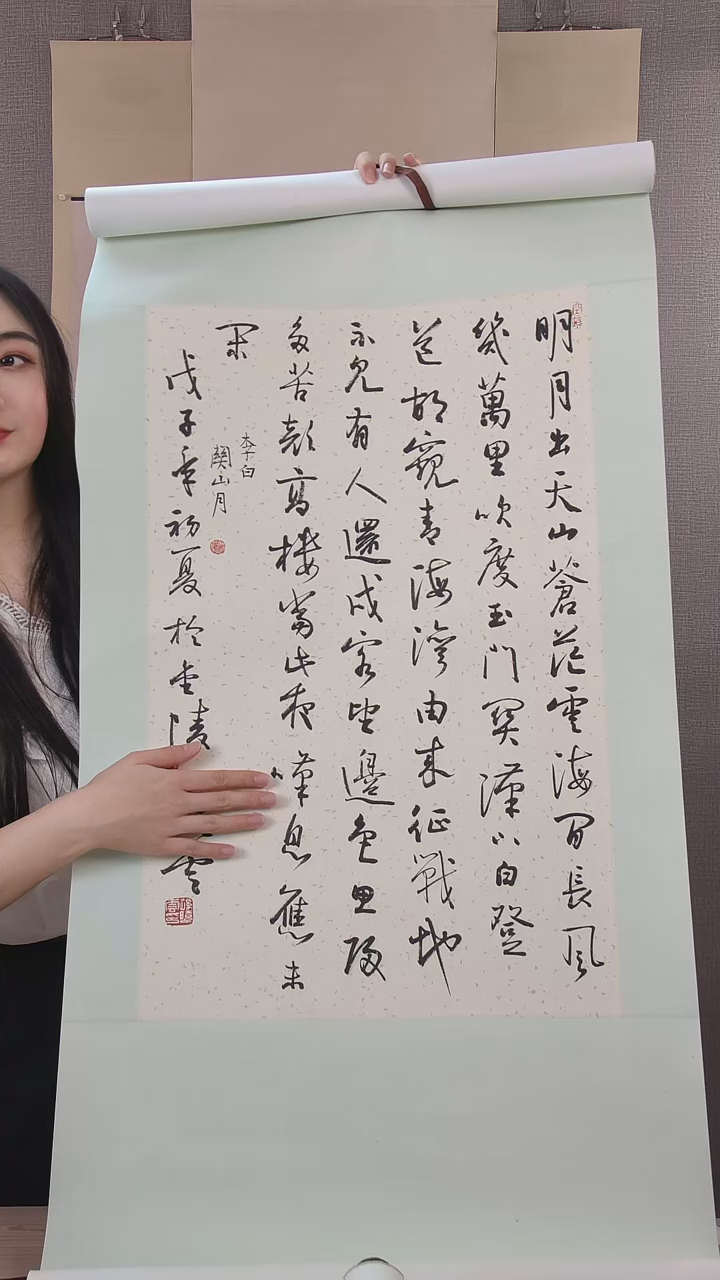 明月出天山蒼茫雲海間長風
幾萬里吹度玉門關漢下白登
道胡窺青海灣由來征戰地
不見有人還戍客望邊色思歸
多苦顏高樓當此夜嘆息應未
閑
李白
關山月
戊子年初夏於金陵